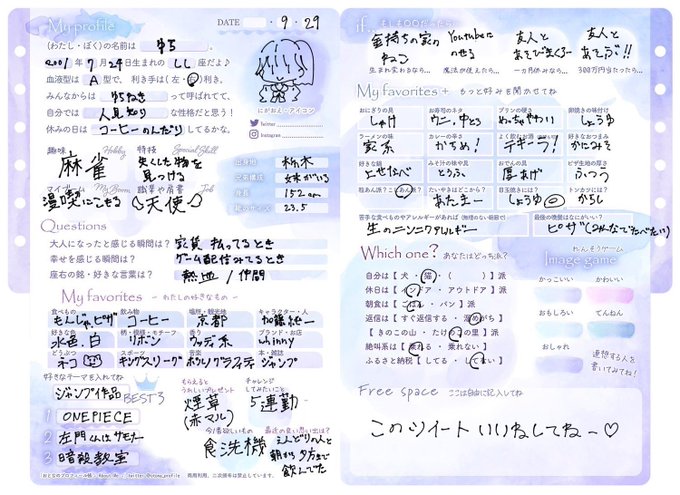 My profile
DATE ・9・29
(わたし・ぼく)の名前は ゆら。
2001年7月24日生まれの しし 座だよ♪
血液型は A 型で、利き手は(左・右)利き。
みんなからは ゆらねき って呼ばれてて、
自分では 人見知り な性格だと思う!
休みの日は コーヒーのんだり してるかな。
にがおえ・アイコン
twitter
Instagram
趣味 Hobby
麻雀
特技 Special Skill
失くした物を
見つける
出身地 栃木
兄弟構成 妹がいる
身長 152cm
靴のサイズ 23.5
マイブーム My Boom
湯喫にこもる
職業や肩書 Job
天使
Questions
大人になったと感じる瞬間は? 家賃払ってるとき
幸せを感じる瞬間は? ゲーム配信みてるとき
座右の銘・好きな言葉は? 熱盛/仲間
My favorites ~ わたしの好きなもの ~
食べもの もんじゃ、ピザ
飲み物 コーヒー
場所・観光地 京都
キャラクター・人 加藤純一
好きな色 水色、白
柄・模様・モチーフ リボン
香り ウッディ系
ブランド・お店 whinny
どうぶつ ネコ
スポーツ キングスリーグ
音楽 ポルノグラフィティ
本・雑誌 ジャンプ
好きなテーマを入れてね
ジャンプ作品 BEST3
1 ONEPIECE
2 左門くんはサモナー
3 暗殺教室
もらえると
うれしいプレゼント
煙草
(赤マル)
チャレンジ
してみたいこと
5連勤
今1番欲しいもの
食洗機
最近の良い思い出は?
えんどりの人と
朝から夕方まで
飲んでた
商用利用、二次頒布は禁止しています。
if... もしも○○だったら
金持ちの家の
ねこ
生まれ変わるなら…
Youtubeに
のせる
魔法が使えたら…
友人と
あそびまくるー
一カ月休みなら…
友人と
あそぶ!!
300万円当たったら…
My favorites + もっと好みを聞かせてね
おにぎりの具 しゃけ
お寿司のネタ ウニ、中とろ
プリンの硬さ めっちゃやわい
卵焼きの味付け しょうゆ
ラーメンの味 家系
カレーの辛さ からめ!
よく飲むお酒 テキーラ!
好きなおつまみ かにみそ
好きな鍋 よせなべ
みそ汁の味や具 とうふ
おでんの具 厚あげ
ピザ生地の厚さ ふつう
粒あん派?こしあん派?
たいやきはどこから? あたまー
目玉焼きには? しょうゆ
トンカツには? からし
苦手な食べものやアレルギーがあれば(無理のない範囲で)
生のニンニクアレルギー
最後の晩餐はなにがいい?
ピザ(みんなでたべたい)
Which one? あなたはどっち派?
自分は【犬・猫・( )】派
休日は【インドア・アウトドア】派
朝食は【ごはん・パン】派
返信は【すぐ返信する・溜めがち】
【きのこの山・たけのこの里】派
絶叫系は【乗れる・乗れない】
ふるさと納税【してる・してない】
れんそうゲーム
Image game
かっこいい
かわいい
おもしろい
てんねん
おしゃれ
連想する人を
書いてみてね!
Free space ここは自由に記入してね
このツイートいいねしてねー♡